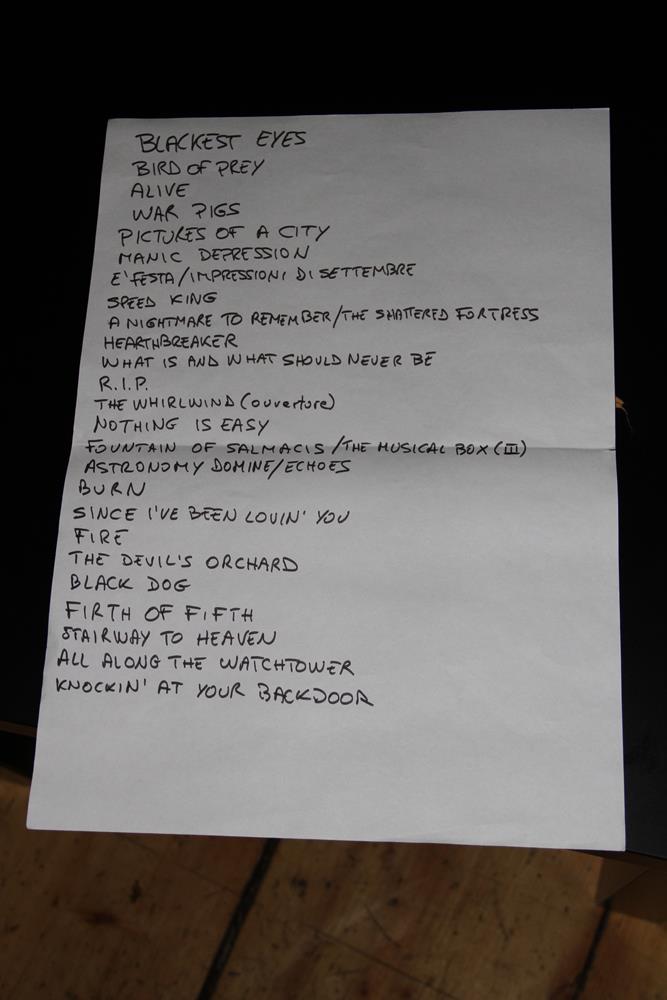 BLACKEST EYES
BIRD OF PREY
ALIVE
WAR PIGS
PICTURES OF A CITY
MANIC DEPRESSION
E' FESTA/IMPRESSIONI DI SETTEMBRE
SPEED KING
A NIGHTMARE TO REMEMBER/THE SHATTERED FORTRESS
HEARTHBREAKER
WHAT IS AND WHAT SHOULD NEVER BE
R.I.P.
THE WHIRLWIND (ouverture)
NOTHING IS EASY
FOUNTAIN OF SALMACIS/THE MUSICAL BOX (III)
ASTRONOMY DOMINE/ECHOES
BURN
SINCE I'VE BEEN LOVIN' YOU
FIRE
THE DEVIL'S ORCHARD
BLACK DOG
FIRTH OF FIFTH
STAIRWAY TO HEAVEN
ALL ALONG THE WATCHTOWER
KNOCKIN' AT YOUR BACKDOOR